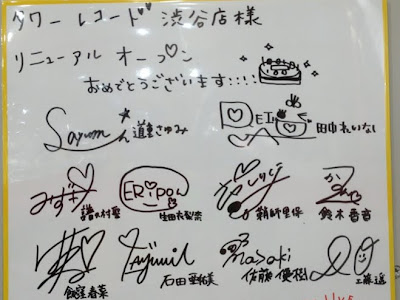 タワーレコード 渋谷店様
リニューアル オープン
おめでとうございます::::
Sayum 道重さゆみ
REI 田中れいな
みずき 譜久村聖
ERiPON 生田衣梨奈
鞘師里保
鈴木香音
飯窪春菜
Ayumi 石田亜佑美
masaki 佐藤優樹
工藤遥